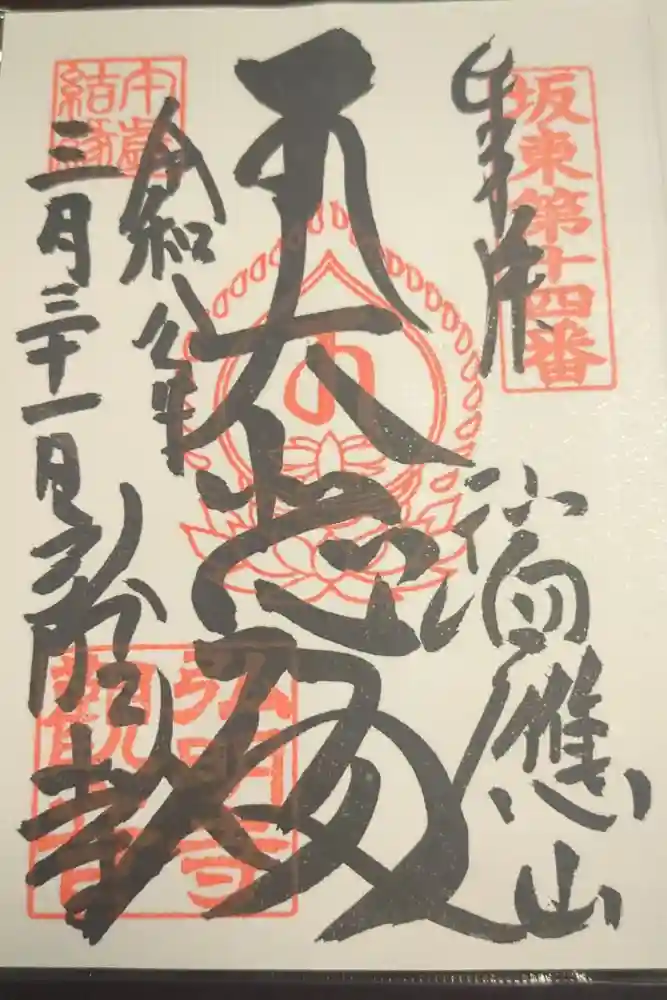 坂東第十四番
奉拝
瑞應山
大悲殿
令和八年
三月三十一日
弘明寺
結縁
弘明寺
觀世音